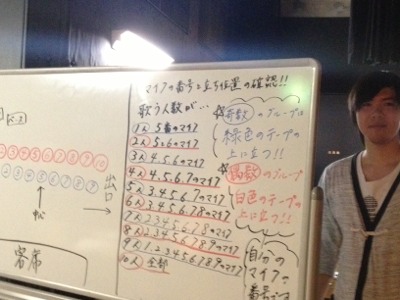 マイクの番号と立ち位置の確認!!
歌う人数が…
1人 5番のマイク
2人 5と6のマイク
3人 4.5.6のマイク
4人 4.5.6.7のマイク
5人 3.4.5.6.7のマイク
6人 3.4.5.6.7.8のマイク
7人 2.3.4.5.6.7.8のマイク
8人 2.3.4.5.6.7.8.9のマイク
9人 1.2.3.4.5.6.7.8.9のマイク
10人 全部
☆奇数のグループは
緑色のテープの
上に立つ!!
☆偶数のグループ
白色のテープの
上に立つ!!
自分の
マイクの
番号
2 3 4 5 6 7 8 9 10
出口
客席